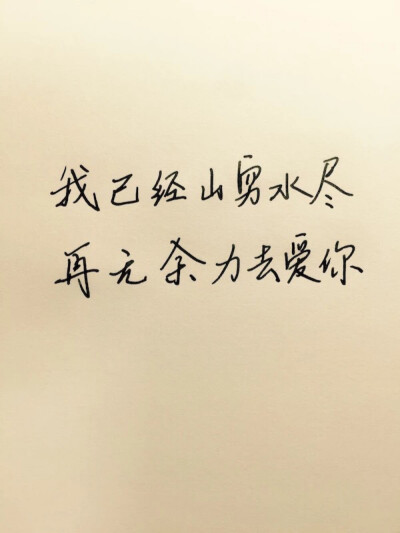 我已经山穷水尽
再无余力去爱你